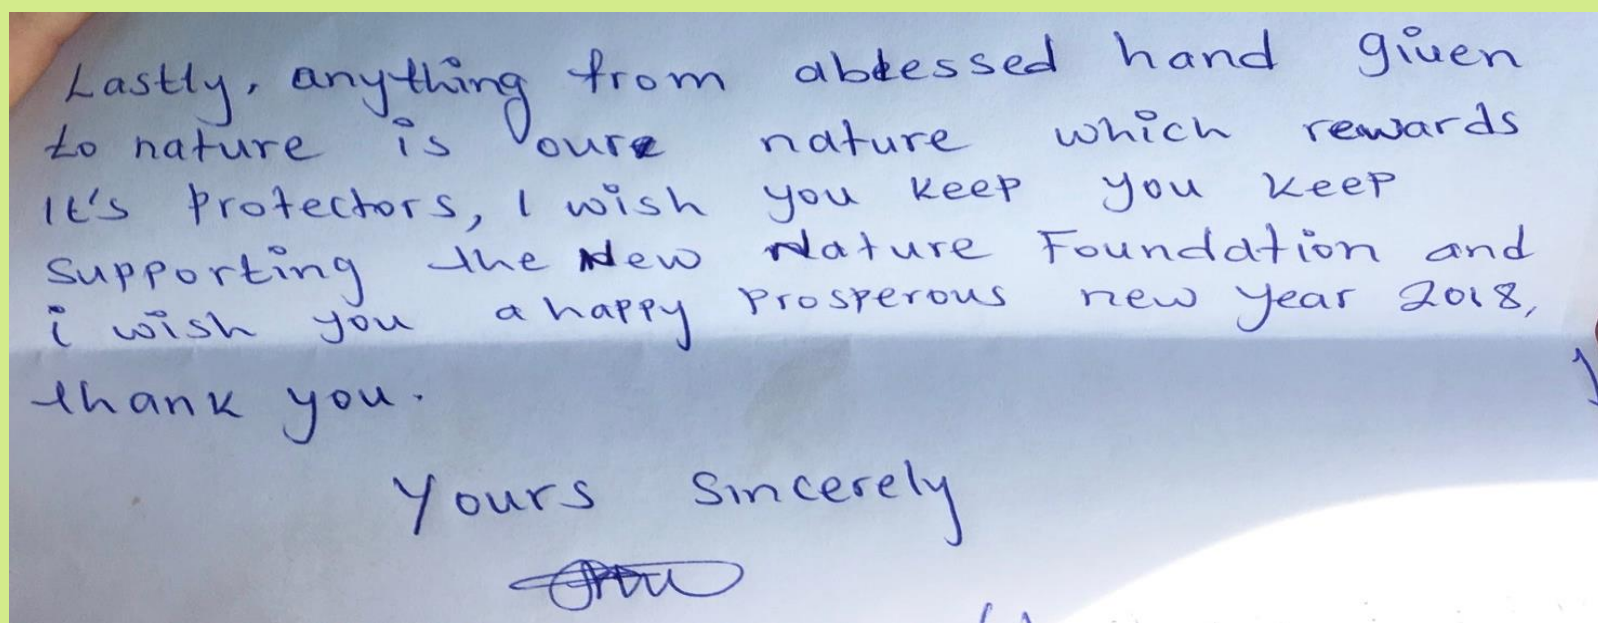 Lastly, anything from ablessed hand given
to nature is oure nature which rewards
It's protectors, I wish you keep you keep
supporting the New Nature Foundation and
i wish you a happy prosperous new year 2018,
thank you.
Yours Sincerely